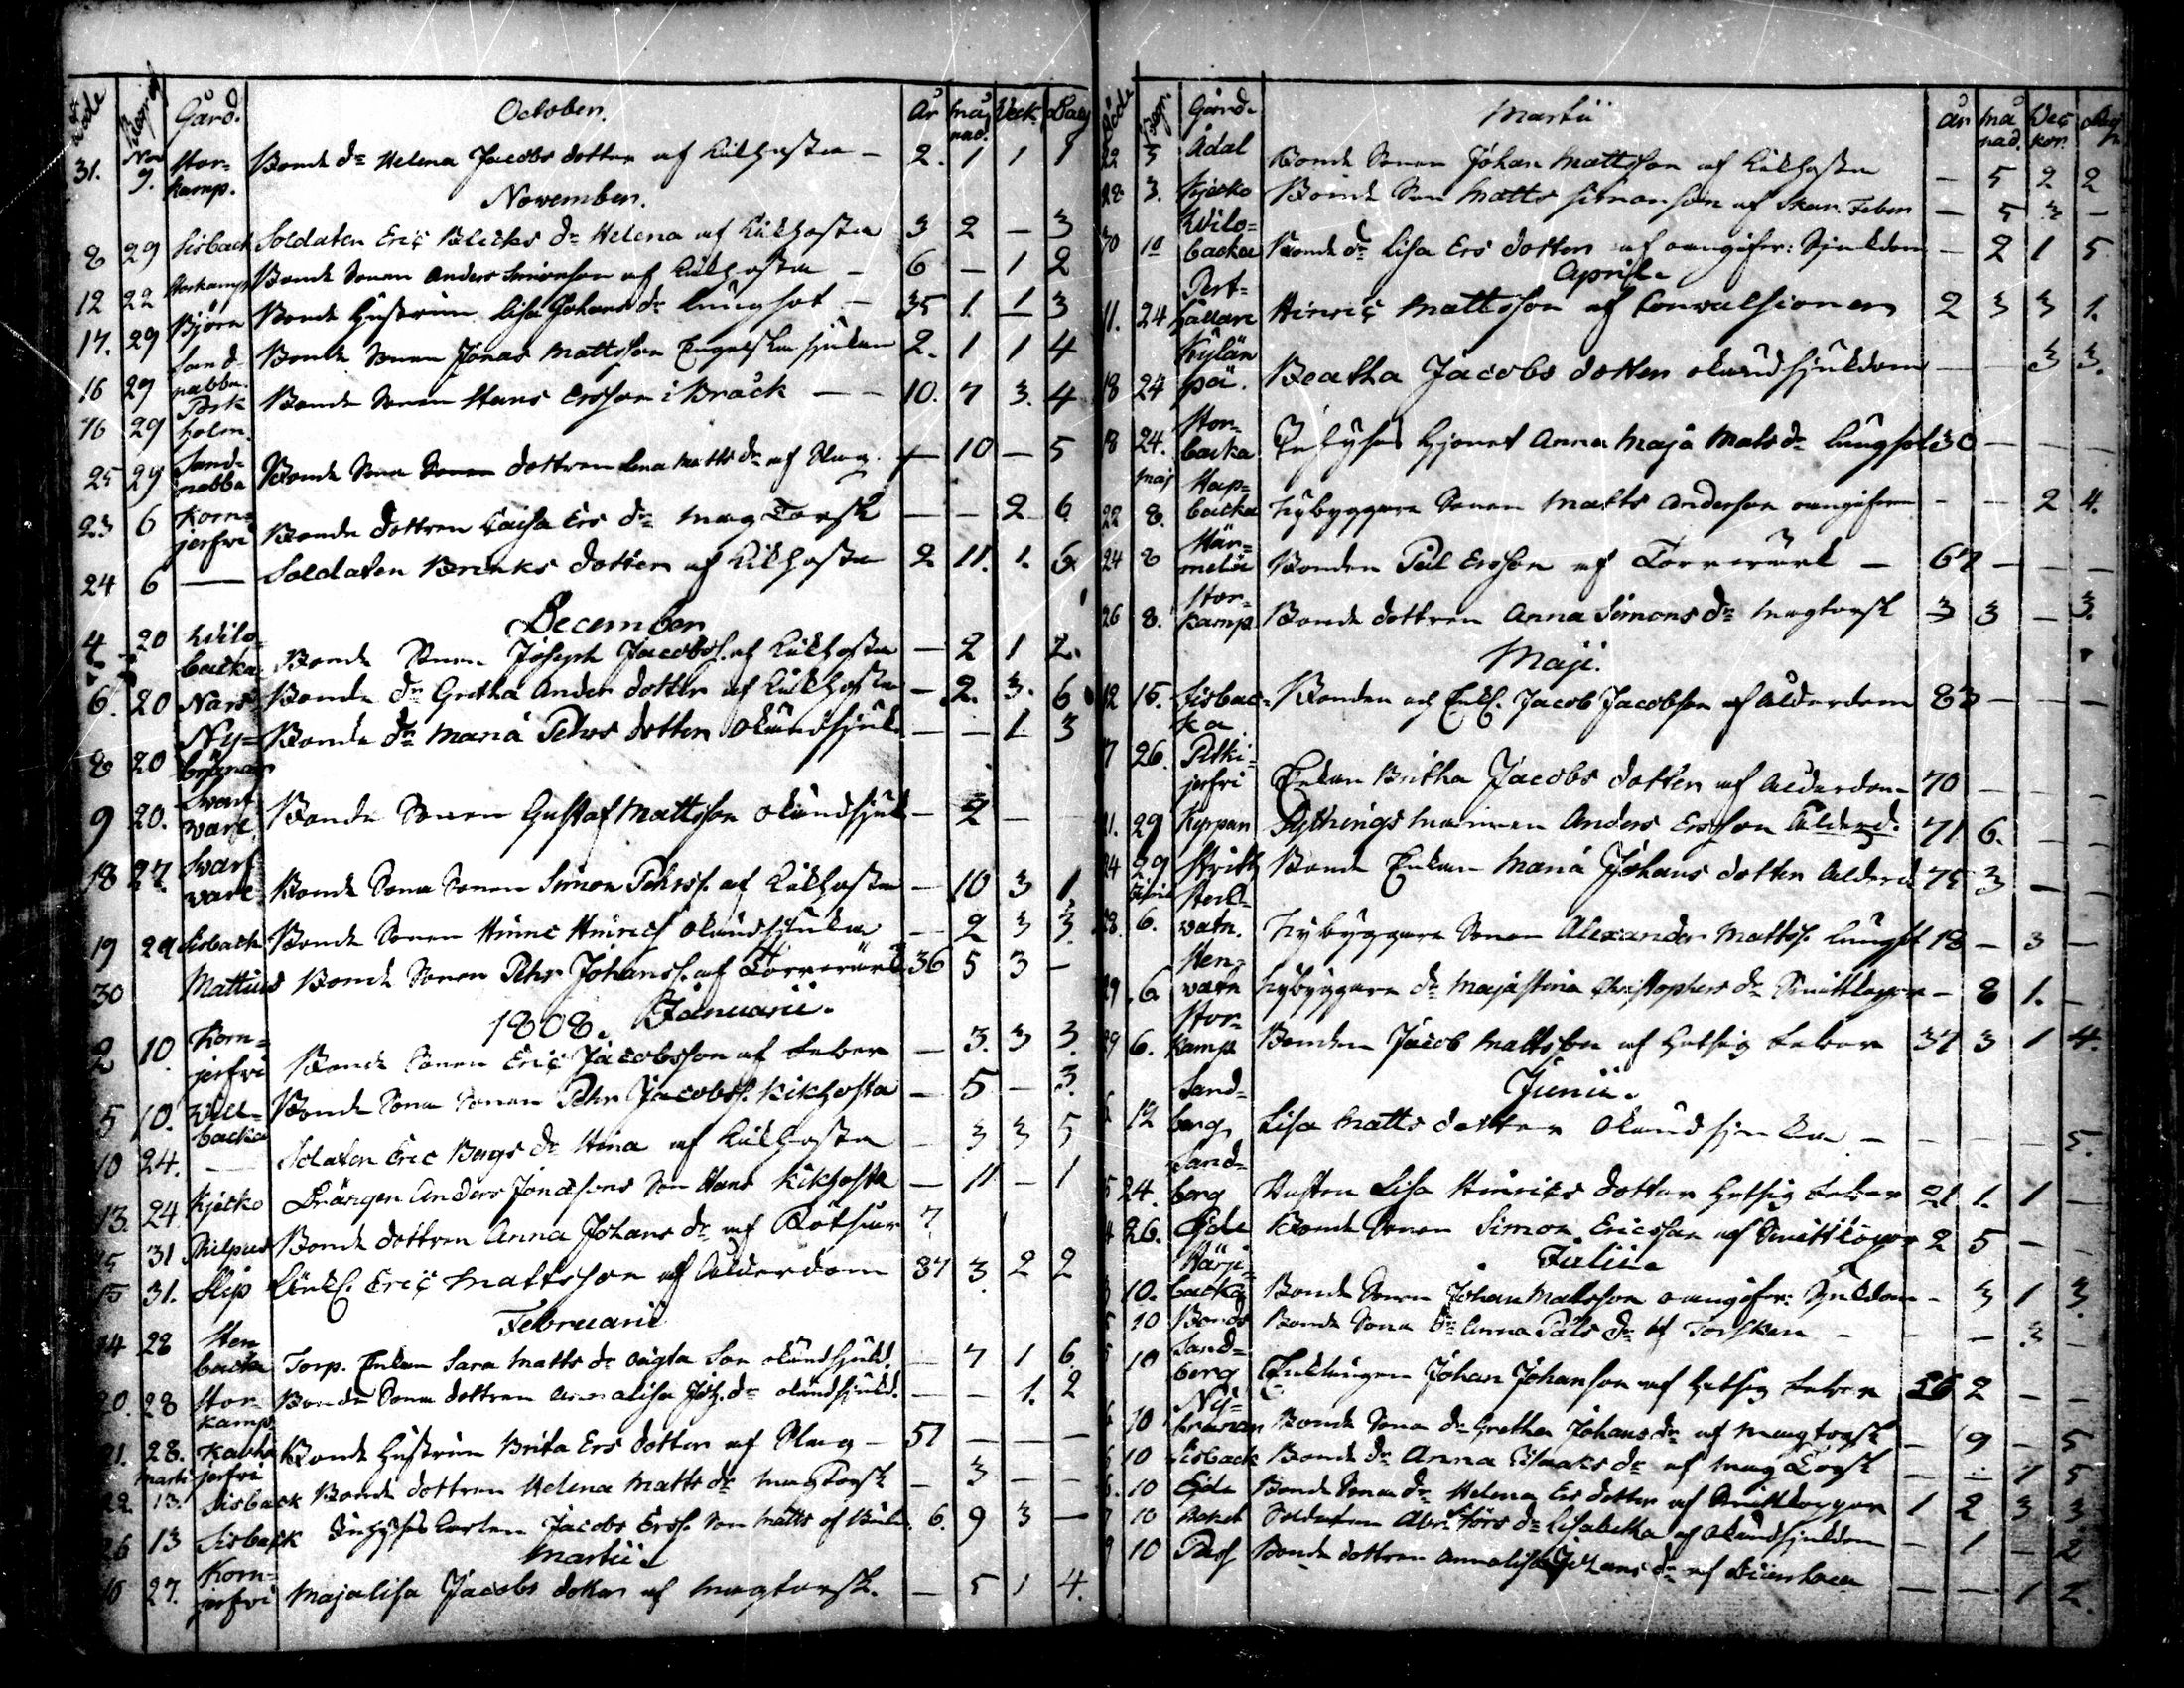 Döde Begraf. Gård. October. År månad. Veck. Dag
31. Nov 9. Storkamp. Bonde dr Helena Jacobs dotter af Kikhosta - 2. 1 1 1
November.
8 29 Lisback Soldaten Eric Blicks dr Helena af Kikhosta 3 2 - 3
12 22 Storkamp Bonde Sonen Anders Simonson af Kikhosta - 6 - 1 2
14. 29 Björn Bonde Hustrun Lisa Johans dr lungsot - 35 1. 1 3
16 29 Sandnabba Bonde Sonen Jonas Mattsson Engelska sjukan 2. 1 1 4
16 29 Perkholm. Bonde Sonen Hans Ersson i Bråck - - 10. 7 3. 4
25 29 Sandnabba Bonde Sona dottren Lena Matts dr af Slag - 10 - 5
23 6 Kornjerfvi Bonde dottren Caisa Ers dr mag Torsk - - 2 6
24 6 - Soldaten Brinks dotter af Kikhosta 2 11. 1. 6
December
4 20 Kvilobacka Bonde Sonen Joseph Jacobs. af Kikhosta - 2 1 2.
6. 20 Nars Bonde dr Gretha Anders dotter af Kikhosta - 2. 3. 6
8 20 Nybrånan Bonde dr Maria Pehrs dotter okändsjuk. - - 1. 3
9 20. Svartvare Bonde Sonen Gustaf Mattsson okändsjuk - 2 -
18 27. Svartvare Bonde Sona Sonen Simon Pehrss. af Kikhosta - 10 3 1
19 29 Lisback Bonde Sonen Hinric Hinrics okändsjuka - 2 3 3.
30 Mattius Bonde Sonen Pehr Johanss. af Torrvärk 36 5 3 -
1808. Januarii.
2 10. Kornjerfvi Bonde Sonen Eric Jacobsson af feber - 3. 3 3.
5 10. Willbacka Bonde Sona Sonen Pehr Jacobss. Kikhosta - 5 - 3.
10 24. - Soldaten Eric Bergs dr Stina af Kikhosta - 3 3 5
13. 24. Kjisko Drängen Anders Jonassons Son Hans Kikhosta - 11 - 1
15 31 Philpus Bonde dottren Anna Johans dr af Rötsur 7
15 31. Slip Enkl. Eric Mattsson af Ålderdom 87 3 2 2
Februarii
14 28 Stenbacka Torp. Enkan Sara Matts dr oägta Son okändsjuk. - 7 1 6
20. 28 Storkamp Bonde Sona dottren Annalisa Joh. dr okändsjuk. - - 1. 2
21. 28. Kauhajerfvi Bonde Hustrun Brita Ers dotter af Slag - 51 - - -
22 Martii 13. Lisback Bonde dottren Helena Matts dr magTorsk - 3 - -
26 13 Lisback Inhyses Karlen Jacobs Erss. Son Matts af 6. 9 3 -
Martii.
18 27. Kornjerfvi Majalisa Jacobs dotter af magtorsk. - 5 1 4.
Döde Begr. Gård. Martii år månad. Veckor. Dag
22 3 Ådal Bonde Sonen Johan Mattsson af Kikhosta - 5 2 2
28 3. Kjisko Bonde Son Matts Simonson af Skar. Feber - 5 3 -
30 10 Kvilobacka Bonde dr Lisa Ers dotter af oangifven: Sjukdom - 2 1 5
April.
11. 24 Perthållare Hinric Mattsson af Convulsioner 2 3 3 1.
18 24 Kylänpä. Beatha Jacobs dotter okändsjukdom - - 3 3.
18 24. Storbacka Inhyses Hjonet Anna Maja Mats dr lungsot 30 - - -
22 maj 8. Hapbacka Nybyggare Sonen Matts Anderson oangifven - - 2 4.
24 8 Härmelä Bonden Pål Ersson af Torrvärk - 67 - - -
26 8. Storkamp Bonde dottren Anna Simons dr magtorsk 3 3 - 3.
Maji.
12 15. Lisbacka Bonden och Enkl. Jacob Jacobson af Ålderdom 83 - - -
17 26. Petkijerfvi Enkan Britha Jacobs dotter af Ålderdom 70 - - -
21. 29 Kyrpan Sythings mannen Anders Ersson Ålderd. 71 6. - -
24 29 Bonde Enkan Maria Johans dotter Ålderd 75 3 - -
28. Junii 6. Stenvatn. Nybyggare Sonen Alexander Mattss. lungsot 18 - 3 -
29 6. Stenvatn Nybyggare dr Majastina Christophers dr Smittkoppor - 8 1. -
29 6. Storkamp Bonden Jacob Mattsson af Hetsig feber 37 3 1 4.
Junii.
12 Sandberg Lisa Matts dotter Okändsjuka - - - - 5.
5 24. Sandberg Hustru Lisa Hinrics dotter Hetsig feber 21 1. 1 -
4 26. Gide Bonde Sonen Simon Ericsson af Smittkoppor 2 5 - -
Julii.
3 10. Härjbacka Bonde Sonen Johan Mattsson oangifven: Sjukdom - 3 1 3.
5 10 Bonds Bonde Sona dr Anna Påls dr af Torsken - - - 3 -
5 10 Sandberg Enklingen Johan Johanson af Hetsig feber 56 2 - -
6 10 Nybrånan Bonde Sona dr Gretha Johans dr af magtorsk - 9 - 5
6 10 Lisback Bonde dr Anna Isaaks dr af mag Torsk - - 1 5
6. 10 Gide Bonde Sona dr Helena Ers dotter af Smittkoppor 1 2 3 3
7 10 Soldaten Abr. Fors dr Lisabetha af okändsjukdom - 1 - 2
9 10 Pass Bonde dottren Annalisa Johans dr af - - 1 2.